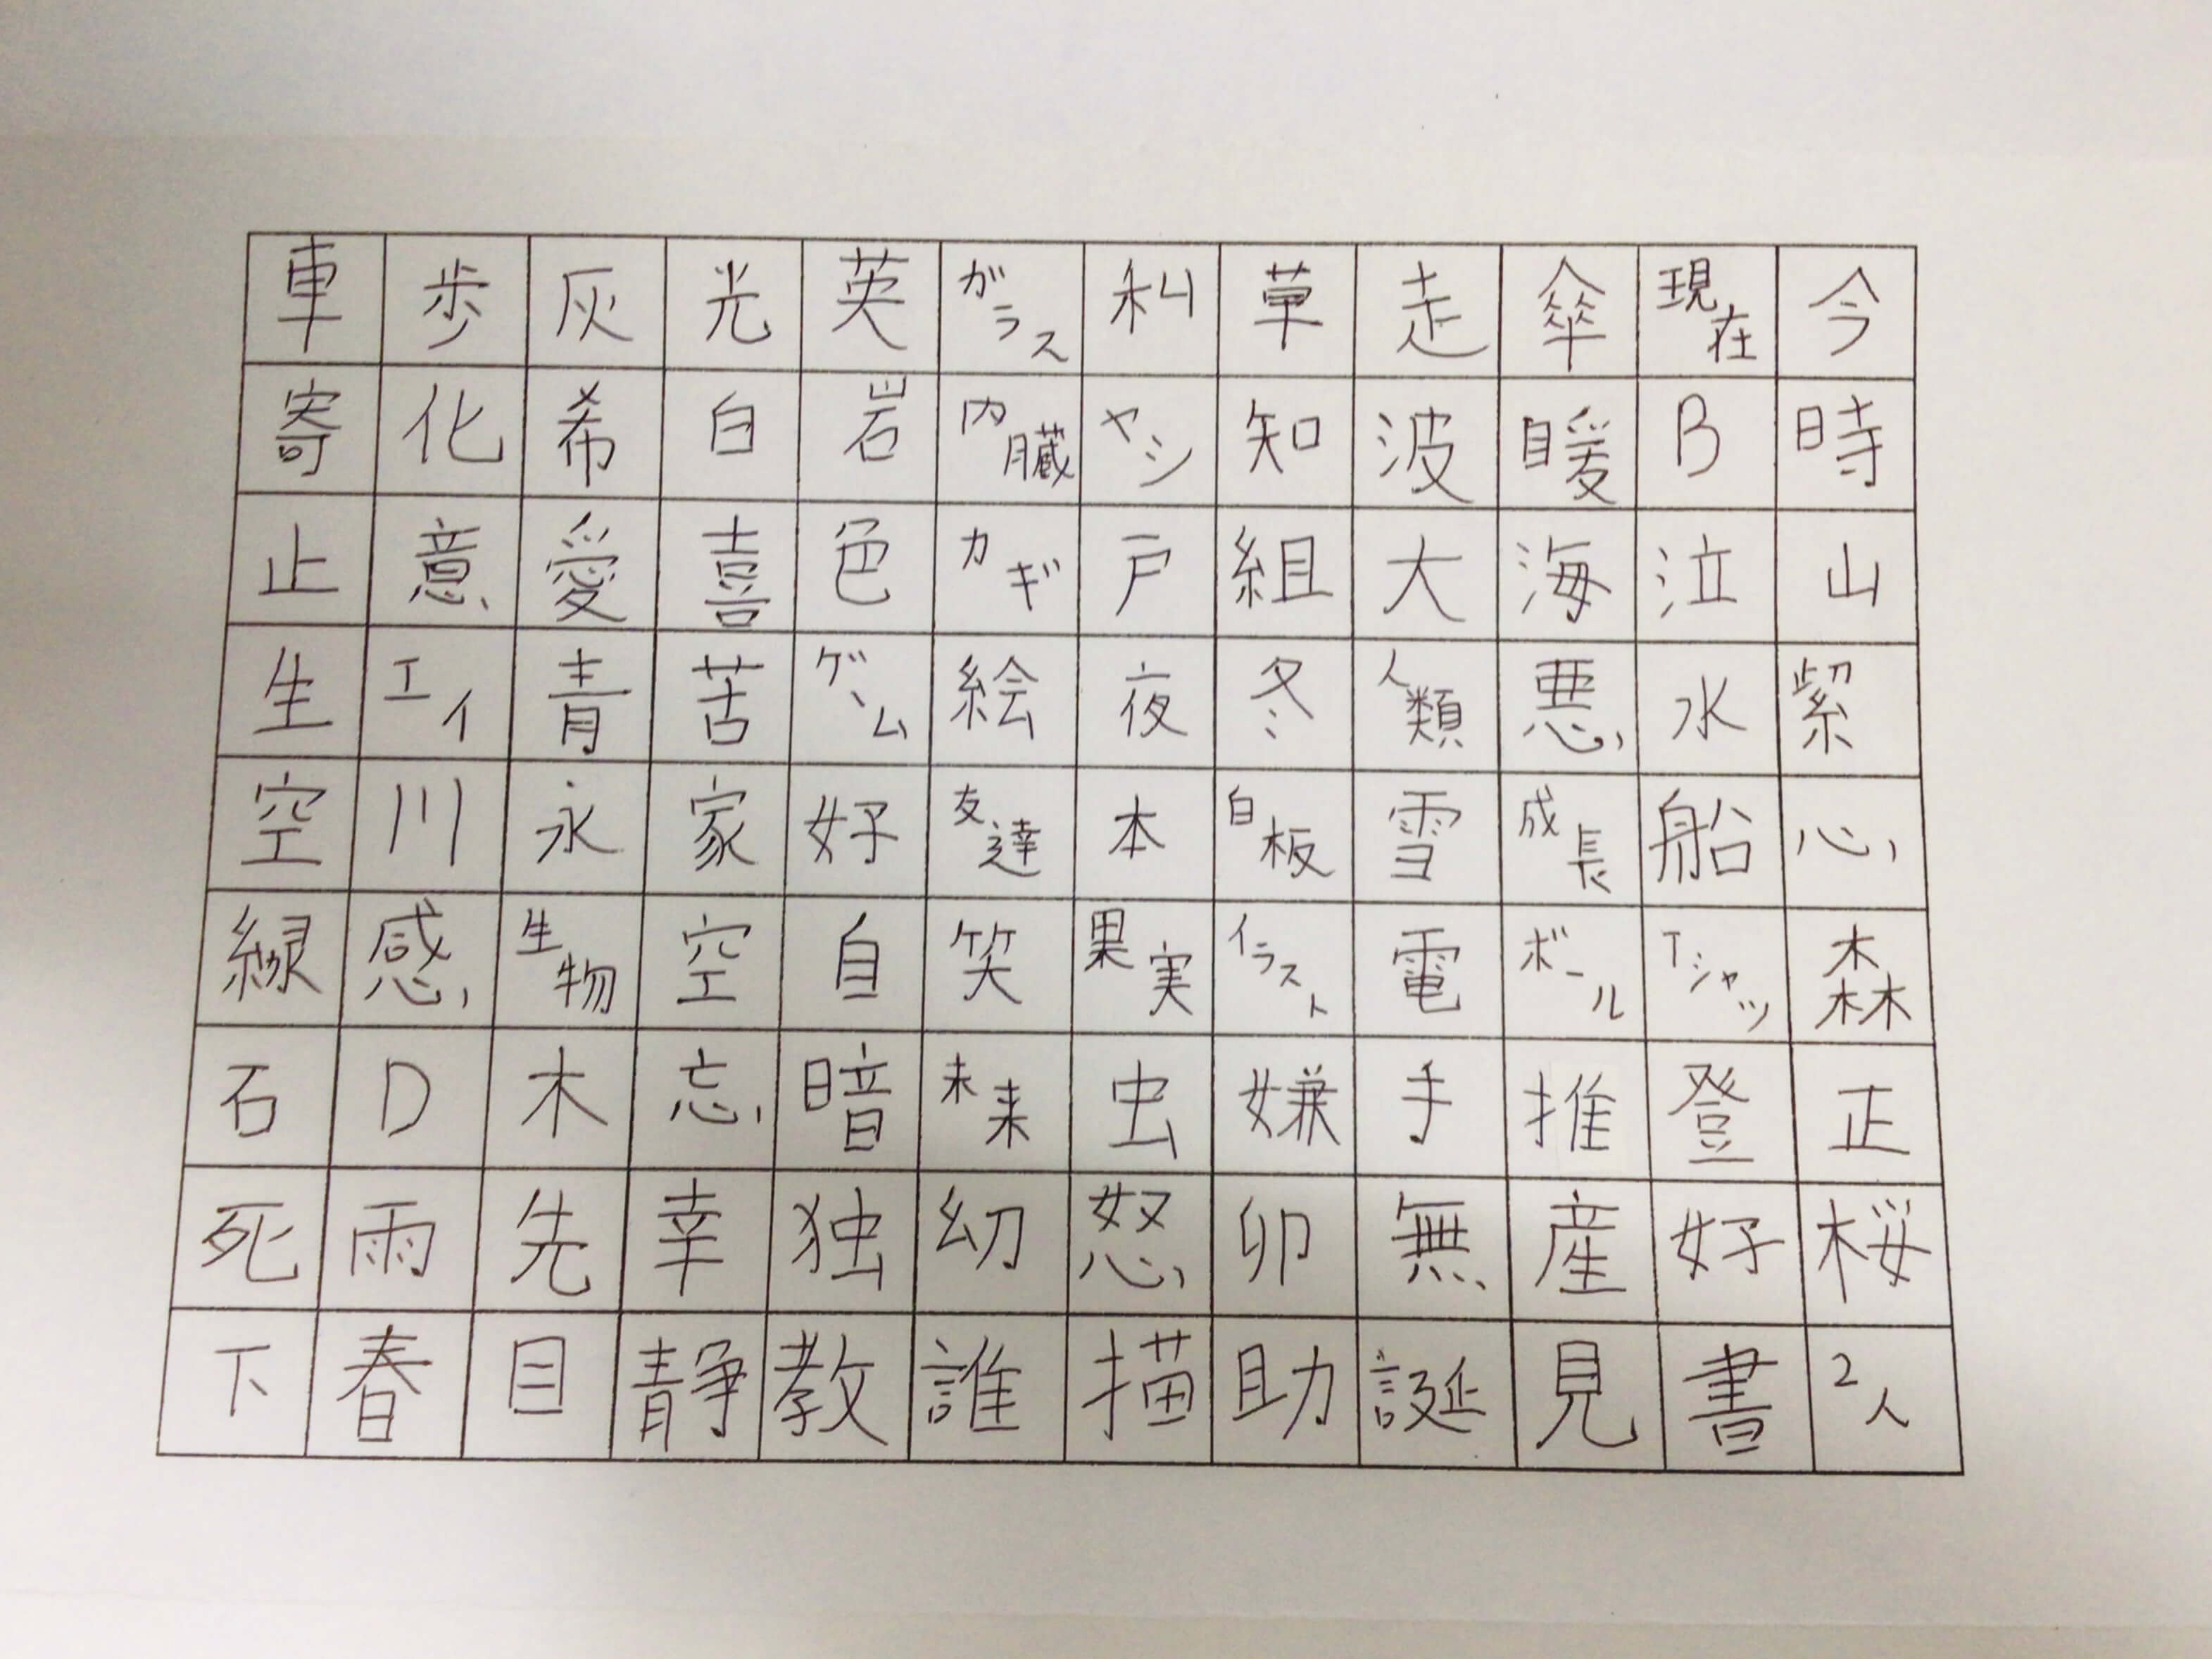 車 歩 灰 光 英 ガラス 糾 草 走 傘 現在 今
寄 化 希 白 岩 内臓 ヤシ 知 波 暖 B 時
止 意 愛 喜 色 カギ 戸 組 大 海 泣 山
生 エイ 青 苦 ゲーム 絵 夜 冬 人類 悪 水 紫
空 川 永 家 好 友達 本 白板 雪 成長 船 心
緑 感 生物 空 自 笑 果実 イラスト 電 ボール Tシャツ 森
石 D 木 忘 暗 未来 虫 嫌 手 推 登 正
死 雨 先 幸 独 幼 怒 卯 無 産 好 桜
下 春 目 静 教 誰 描 助 誕 見 書 2人